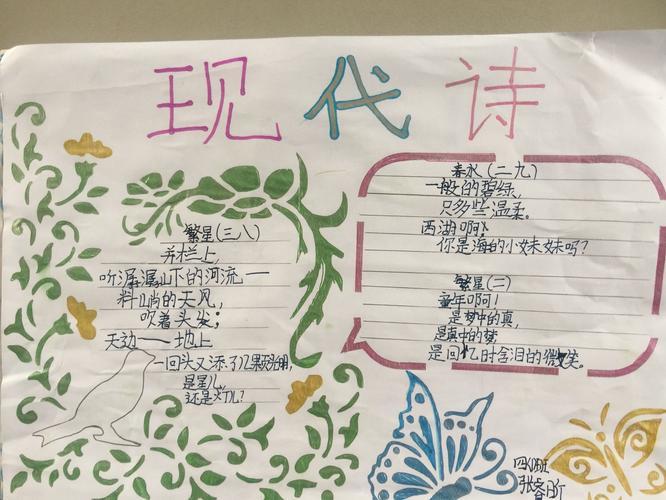 现代诗
繁星(三八)
井栏上,
听潺潺山下的河流一
料峭的天风,
吹着头发;
天边——地上
一回头又添了几颗光明,
是星儿,
还是灯儿?
春水(二九)
一般的碧绿,
只多些温柔。
西湖啊,
你是海的小妹妹吗?
繁星(二)
童年啊!
是梦中的真,
是真中的梦,
是回忆时含泪的微笑。